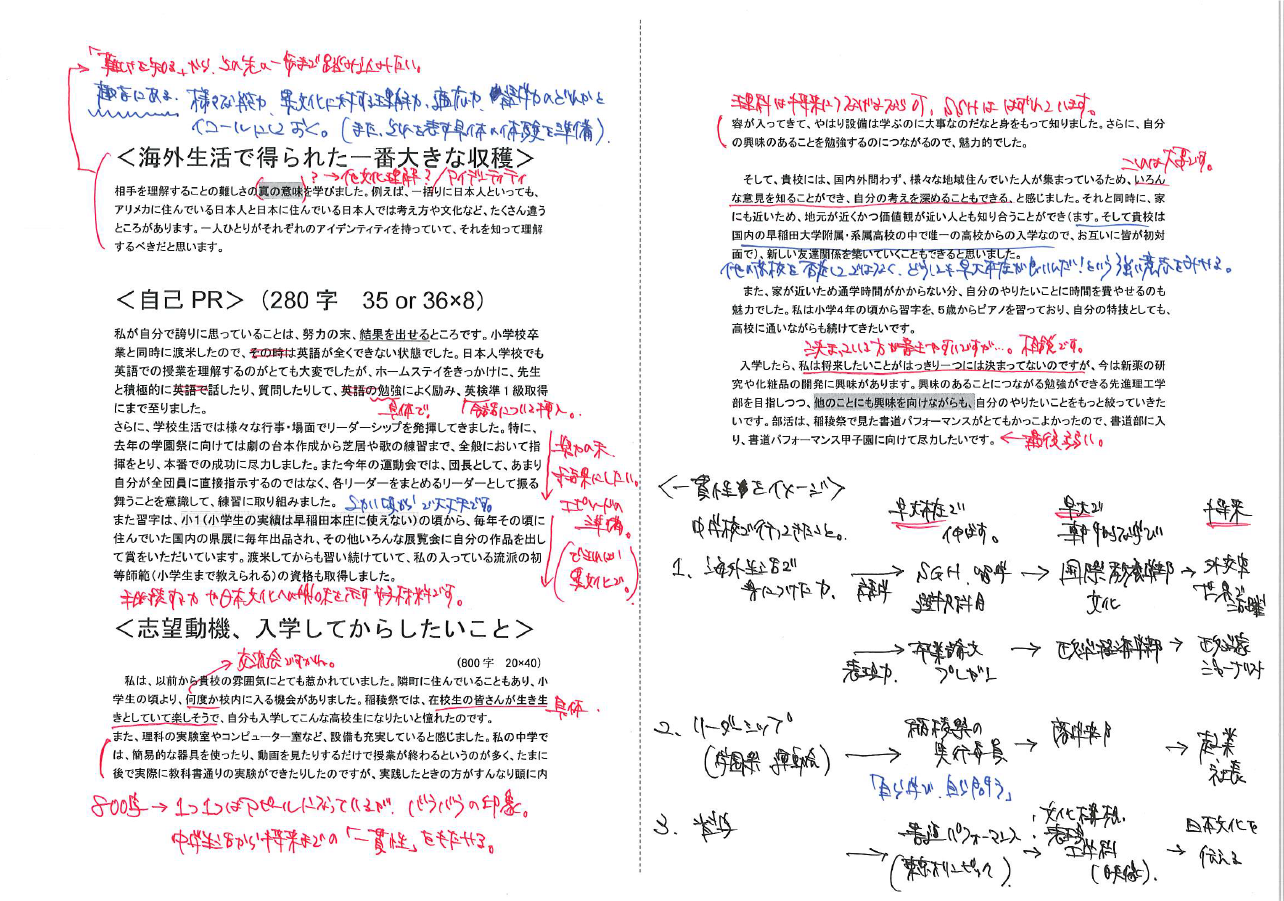 「難しさを知る」から、その先の一歩まで踏み込みたい。
様々な能力、異文化に対する理解力、適応力、語学力のどれかと
イコールにしておく。(また、それを表す具体の体験を準備)
<海外生活で得られた一番大きな収穫>
?→他文化理解?/アイデンティティ
相手を理解することの難しさの真の意味を学びました。例えば、一括りに日本人といっても、
アリメカに住んでいる日本人と日本に住んでいる日本人では考え方や文化など、たくさん違う
ところがあります。一人ひとりがそれぞれのアイデンティティを持っていて、それを知って理解
するべきだと思います。
<自己 PR>(280 字 35 or 36×8)
私が自分で誇りに思っていることは、努力の末、結果を出せるところです。小学校卒
業と同時に渡米したので、その時は英語が全くできない状態でした。日本人学校でも
英語での授業を理解するのがとても大変でしたが、ホームステイをきっかけに、先生
と積極的に英語で話したり、質問したりして、英語の勉強によく励み、英検準1級取得
にまで至りました。
具体で。 「会話について挿入。
さらに、学校生活では様々な行事・場面でリーダーシップを発揮してきました。特に、
去年の学園祭に向けては劇の台本作成から芝居や歌の練習まで、全般において指
揮をとり、本番での成功に尽力しました。また今年の運動会では、団長として、あまり
自分が全団員に直接指示するのではなく、各リーダーをまとめるリーダーとして振る
舞うことを意識して、練習に取り組みました。
努力の末
結果にしたい。
エピソードの
準備。
(できれば
異文化で。)
また習字は、小1(小学生の実績は早稲田本庄に使えない)の頃から、毎年その頃に
住んでいた国内の県展に毎年出品され、その他いろんな展覧会に自分の作品を出し
て賞をいただいています。渡米してからも習い続けていて、私の入っている流派の初
等師範(小学生まで教えられる)の資格も取得しました。
<志望動機、入学してからしたいこと>
→交流会ですかね。
(800 字 20×40)
私は、以前から貴校の雰囲気にとても惹かれていました。隣町に住んでいることもあり、小
学生の頃より、何度か校内に入る機会がありました。稲稜祭では、在校生の皆さんが生き生
きとしていて楽しそうで、自分も入学してこんな高校生になりたいと憧れたのです。
具体.
また、理科の実験室やコンピューター室など、設備も充実していると感じました。私の中学で
は、簡易的な器具を使ったり、動画を見たりするだけで授業が終わるというのが多く、たまに
後で実際に教科書通りの実験ができたりしたのですが、実践したときの方がすんなり頭に内
800字→1つ1つはアピールになっているが、バラバラの印象。
中学生活から将来までの「一貫性」をもたせる。
理科は将来につながるならOK, SGHははずれています。
容が入ってきて、やはり設備は学ぶのに大事なのだなと身をもって知りました。さらに、自分
の興味のあることを勉強するのにつながるので、魅力的でした。
これは大事です。
そして、貴校には、国内外問わず、様々な地域住んでいた人が集まっているため、いろん
な意見を知ることができ、自分の考えを深めることもできる、と感じました。それと同時に、家
にも近いため、地元が近くかつ価値観が近い人とも知り合うことができ(ます。そして貴校は
国内の早稲田大学附属・系属高校の中で唯一の高校からの入学なので、お互いに皆が初対
面で)、新しい友達関係を築いていくこともできると思いました。
他の高校を否定してではなく、どうしても早大本庄が良いんだ!という強い意志をみせる。
また、家が近いため通学時間がかからない分、自分のやりたいことに時間を費やせるのも
魅力でした。私は小学4年の頃から習字を、5歳からピアノを習っており、自分の特技としても、
高校に通いながらも続けてきたいです。
決まっている方が書きやすいですが…。相談です。
入学したら、私は将来したいことがはっきり一つには決まってないのですが、今は新薬の研
究や化粧品の開発に興味があります。興味のあることにつながる勉強ができる先進理工学
部を目指しつつ、他のことにも興味を向けながらも、自分のやりたいことをもっと絞っていきた
いです。部活は、稲稜祭で見た書道パフォーマンスがとてもかっこよかったので、書道部に入
り、書道パフォーマンス甲子園に向けて尽力したいです。←最後弱い。
<一貫性をイメージ>
中学校で行ってきたこと。 早大本庄で伸ばす。 早大で専門的な学び 将来
1、海外生活で身につけた力、→語学 SGH、留学 選択科目→国際教養学部 文化→外交官 世界で活躍
→表現力、 卒業論文 プレゼン→政治経済学部→政治家 ジャーナリスト
2、リーダーシップ(学園祭、運動会)→稲稜祭の実行委員→商学部→起業 社長
「自ら学び、自ら問う」
3、習字→書道パフォーマンス(東京オリンピック)→文化構想、表現 工学科(映像).→日本文化を伝える